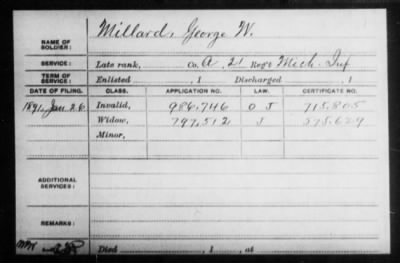 NAME OF SOLDIER: Millard, George W.
SERVICE: Late rank, Co. A, 21 Reg't Mich. Inf
TERM OF SERVICE: Enlisted , 1 Discharged , 1
DATE OF FILING. CLASS. APPLICATION NO. LAW. CERTIFICATE NO.
1891, Jan 26 Invalid, 986,746 O J 715,805
Widow, 797,512 J 575,629
Minor,
ADDITIONAL SERVICES:
REMARKS:
Died , 1 , at